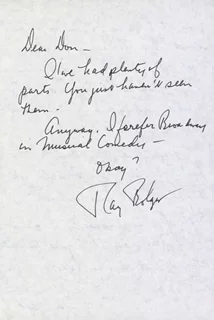 Dear Don -
I've had plenty of
parts. You just haven't seen
them.
Anyway, I prefer Broadway
in Musical Comedy -
Okay?
Ray Bolger